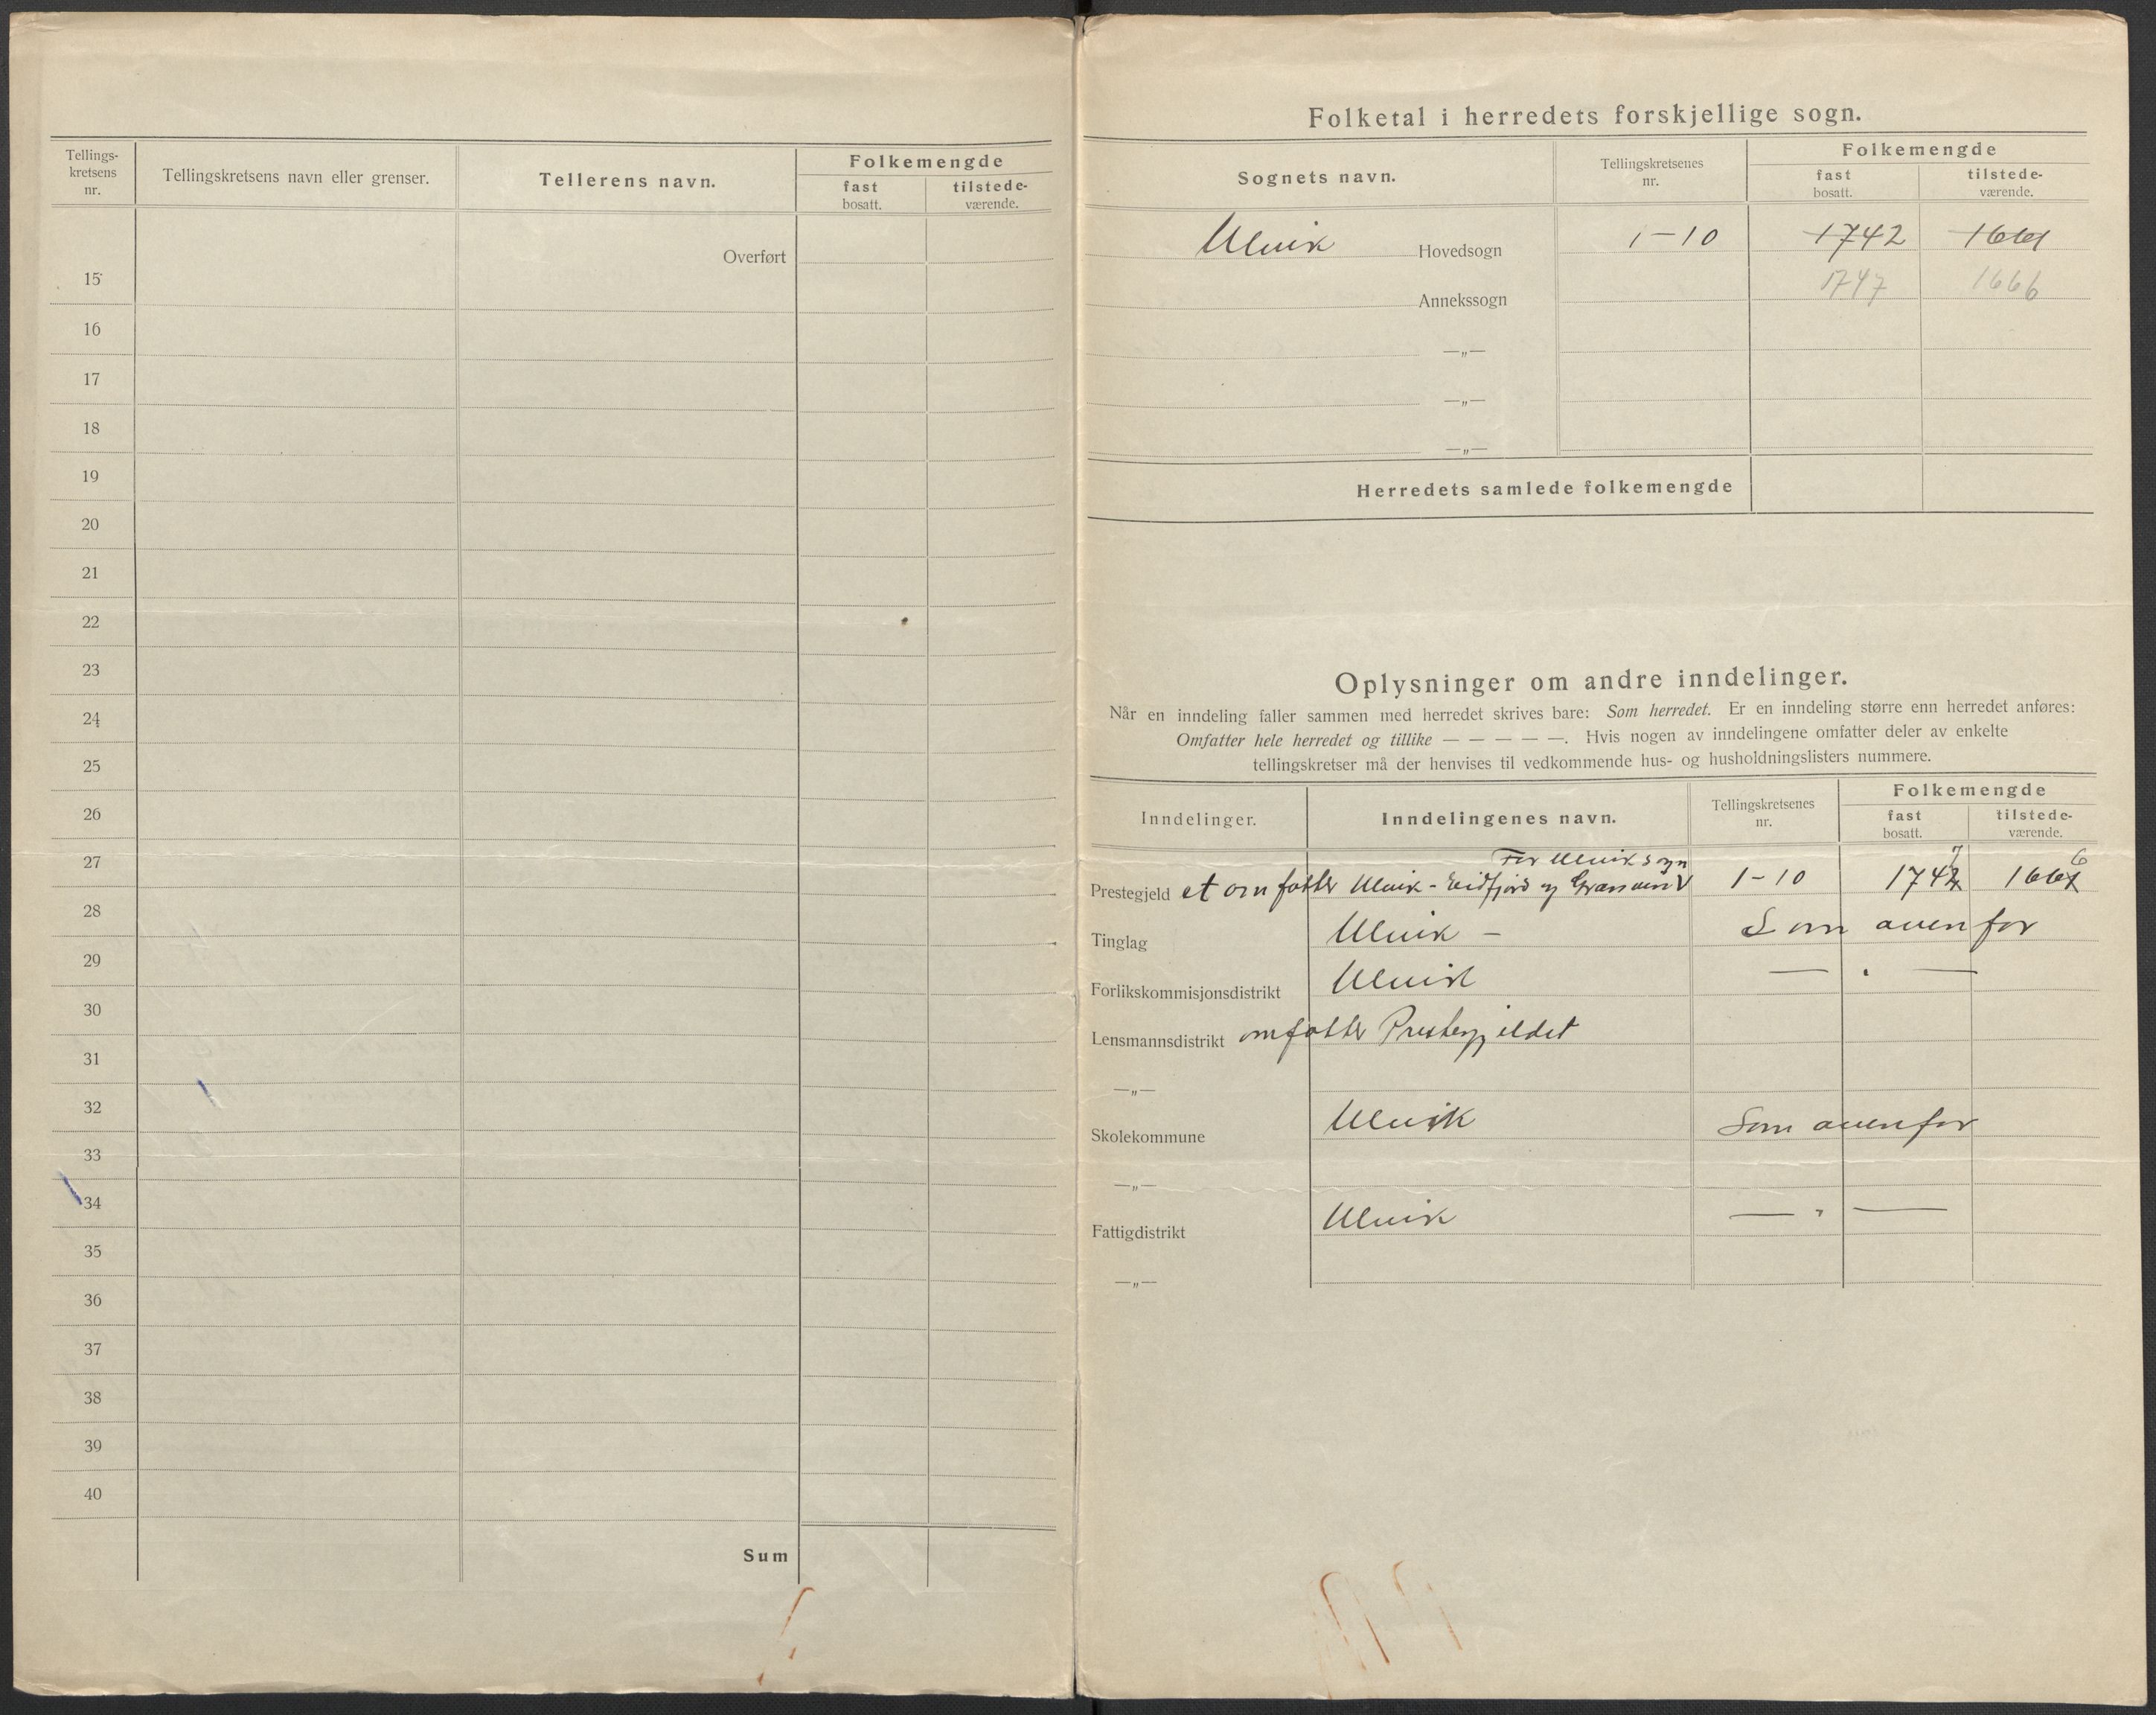 Tellings-
kretsens
nr.
Tellingskretsens navn eller grenser.
Tellerens navn.
Folkemengde
fast
bosatt.
tilstede-
værende.
Overført
15
16
17
18
19
20
21
22
23
24
25
26
27
28
29
30
31
32
33
34
35
36
37
38
39
40
Sum
Folketal i herredets forskjellige sogn.
Sognets navn.
Tellingskretsenes
nr.
Folkemengde
fast
bosatt.
tilstede-
værende.
Ulvik Hovedsogn 1-10 1742 1661
Annekssogn 1747 1666
—„—
—„—
—„—
Herredets samlede folkemengde
Oplysninger om andre inndelinger.
Når en inndeling faller sammen med herredet skrives bare: Som herredet. Er en inndeling større enn herredet anføres:
Omfatter hele herredet og tillike — — — — —. Hvis nogen av inndelingene omfatter deler av enkelte
tellingskretser må der henvises til vedkommende hus- og husholdningslisters nummere.
Inndelinger.
Inndelingenes navn.
Tellingskretsenes
nr.
Folkemengde
fast
bosatt.
tilstede-
værende.
For Ulvik sogn 7 6
Prestegjeld et omfatter Ulvik - Eidfjord og Granvin 1-10 1742 1661
Tinglag Ulvik - Som ovenfor
Forlikskommisjonsdistrikt Ulvik — „ —
Lensmannsdistrikt omfatter Prestegjeldet
—„—
Skolekommune Ulvik Som ovenfor
—„—
Fattigdistrikt Ulvik — „ —
—„—